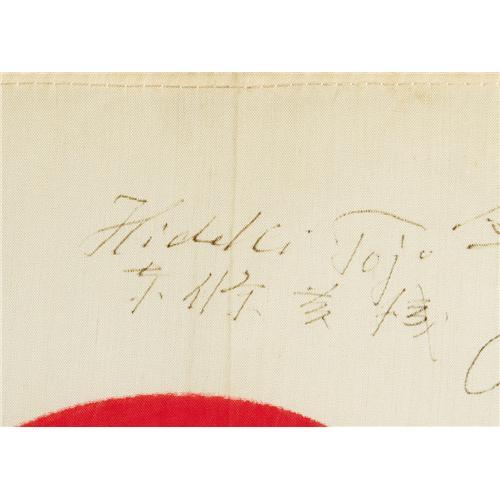 Hideki Tojo
东條英機